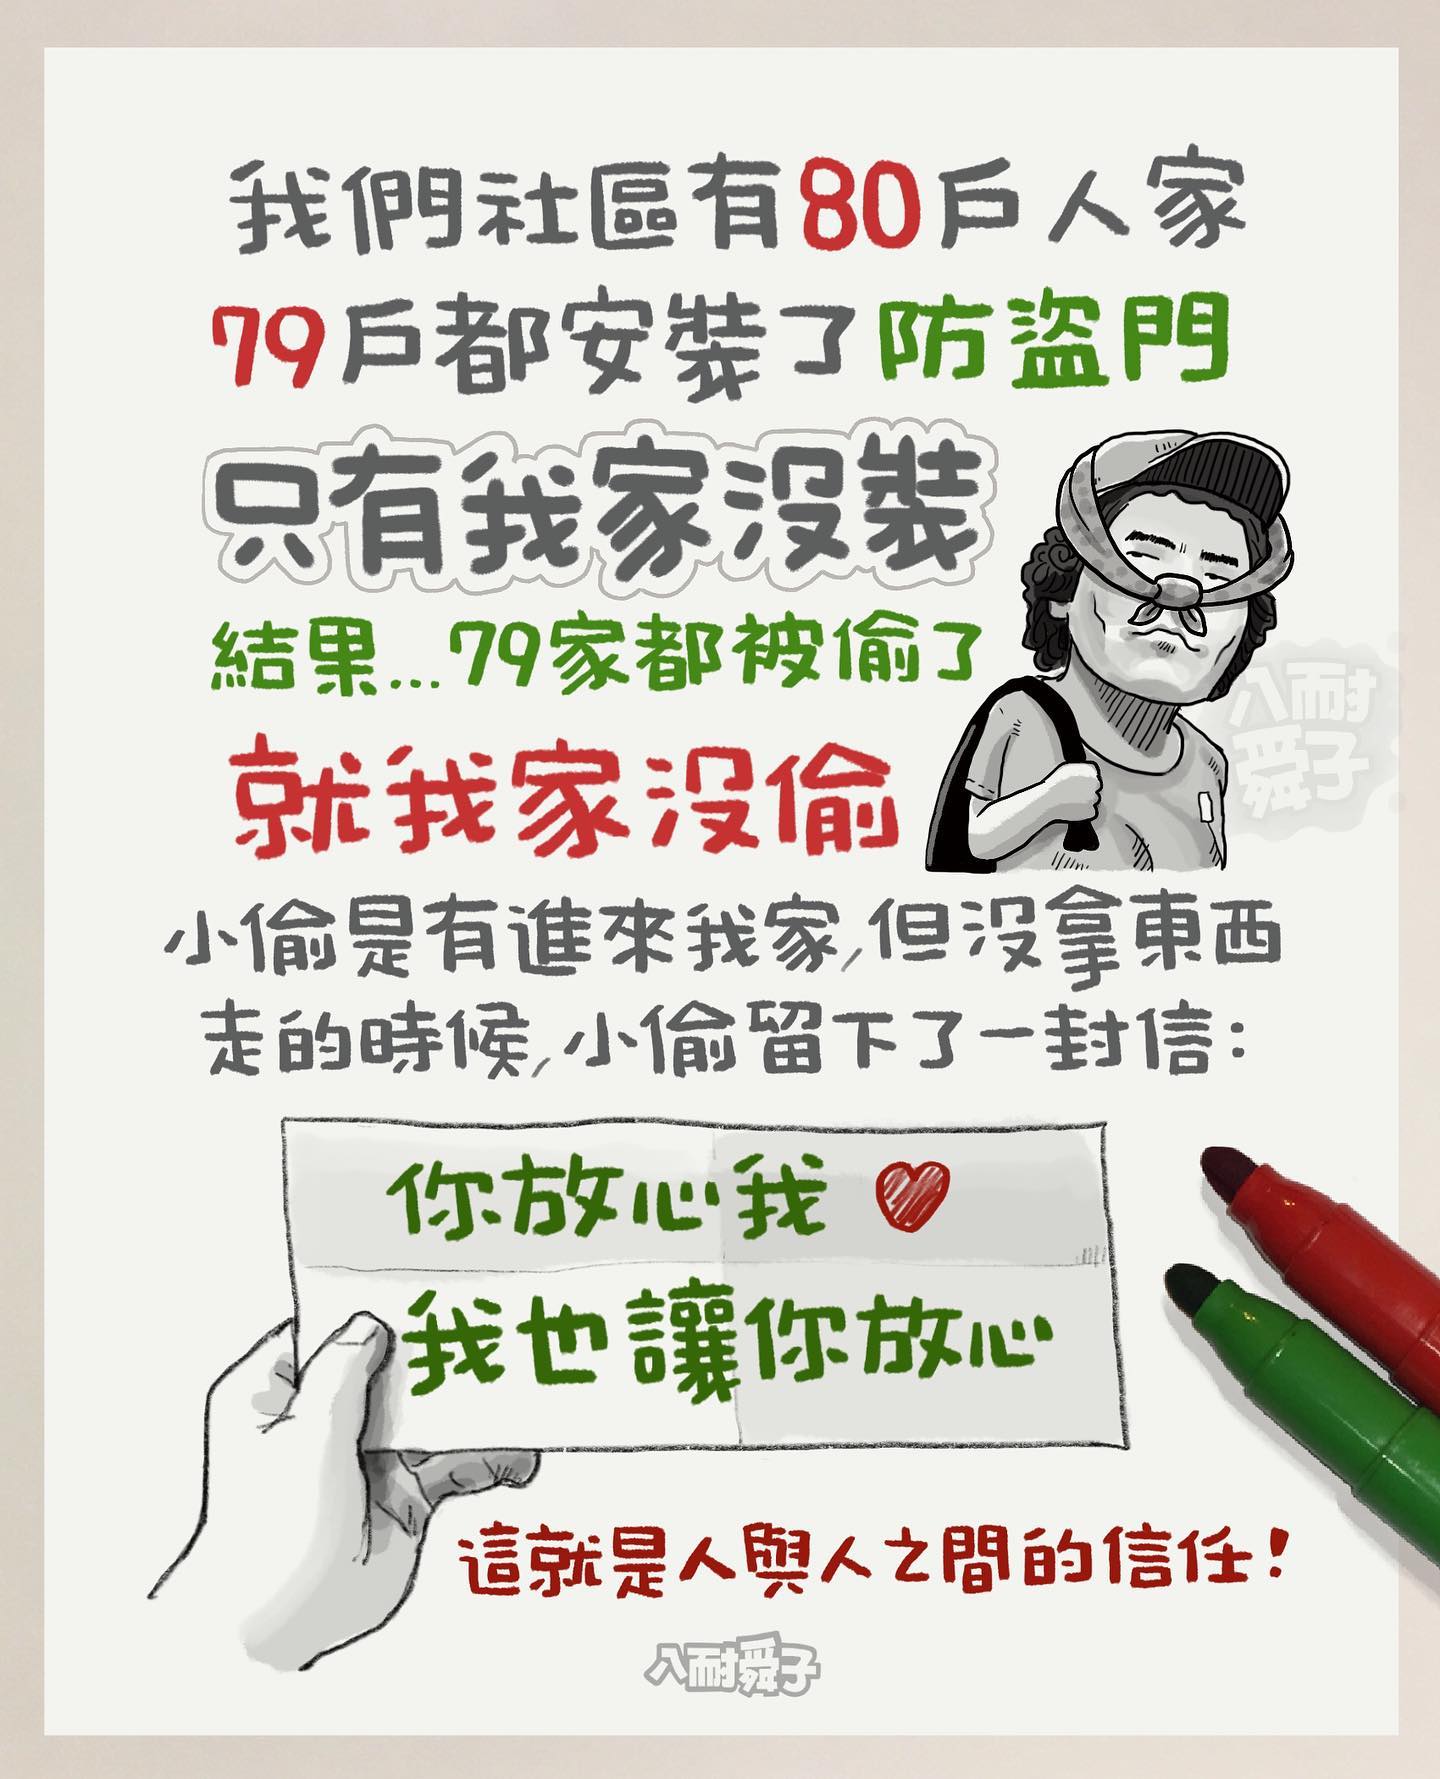 我們社區有80戶人家
79戶都安裝了防盜門
只有我家沒裝
結果...79家都被偷了
就我家沒偷
八耐
舜子
小偷是有進來我家,但沒拿東西
走的時候,小偷留下了一封信:
你放心我
我也讓你放心
這就是人與人之間的信任!
八耐舜子